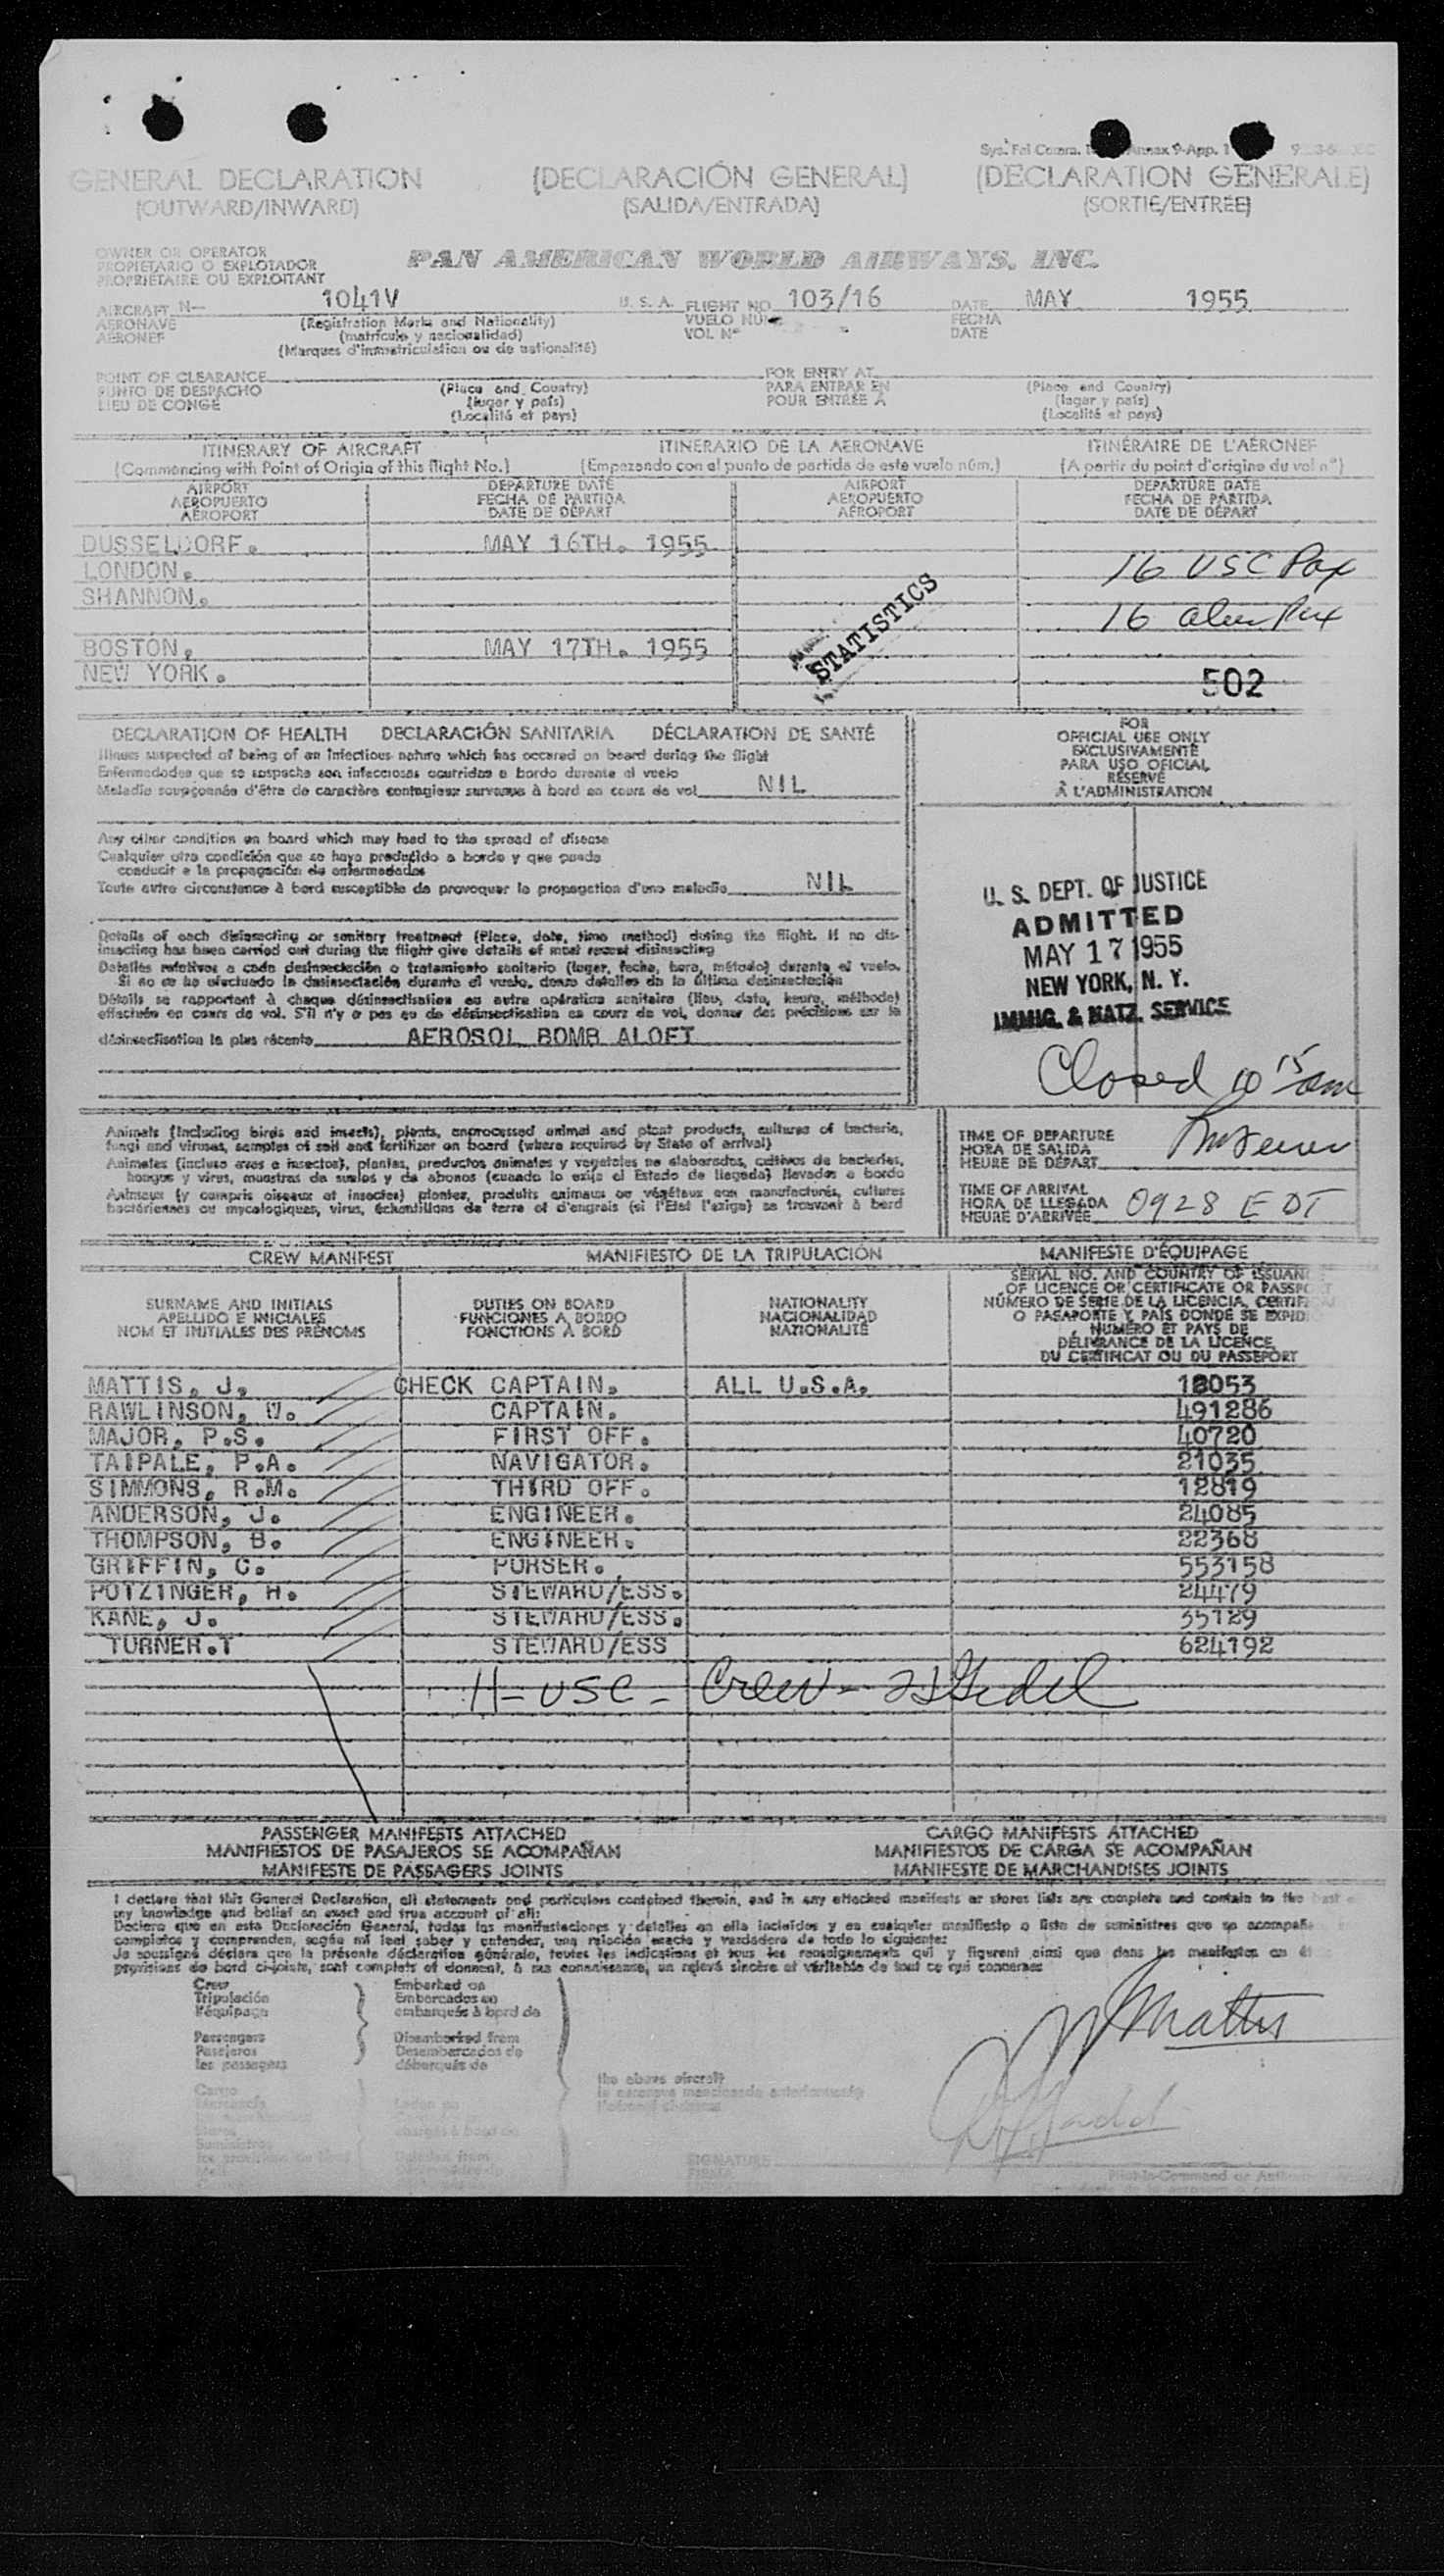 Annex 9-App. 1
GENERAL DECLARATION (DECLARACIÓN GENERAL) (DECLARATION GÉNÉRALE)
(OUTWARD/INWARD) (SALIDA/ENTRADA) (SORTIE/ENTRÉE)
OWNER OR OPERATOR
PROPIETARIO O EXPLOTADOR
PROPRIÉTAIRE OU EXPLOITANT
PAN AMERICAN WORLD AIRWAYS, INC.
AIRCRAFT N— 1041V U. S. A. FLIGHT NO. 103/16 DATE MAY 1955
AERONAVE (Registration Marks and Nationality) VUELO NÚM. FECHA
AÉRONEF (matrícula y nacionalidad) VOL Nº DATE
(Marques d'immatriculation ou de nationalité)
POINT OF CLEARANCE FOR ENTRY AT
PUNTO DE DESPACHO (Place and Country) PARA ENTRAR EN (Place and Country)
LIEU DE CONGÉ (lugar y país) POUR ENTRÉE A (lugar y país)
(Localité et pays) (Localité et pays)
ITINERARY OF AIRCRAFT ITINERARIO DE LA AERONAVE ITINÉRAIRE DE L'AÉRONEF
(Commencing with Point of Origin of this flight No.) (Empezando con el punto de partida de este vuelo núm.) (A partir du point d'origine du vol nº)
AIRPORT DEPARTURE DATE AIRPORT DEPARTURE DATE
AEROPUERTO FECHA DE PARTIDA AEROPUERTO FECHA DE PARTIDA
AÉROPORT DATE DE DÉPART AÉROPORT DATE DE DÉPART
DUSSELDORF. MAY 16TH. 1955
LONDON. 16 USC Pax
SHANNON.
16 alien Pax
BOSTON, MAY 17TH. 1955
STATISTICS
NEW YORK. 502
DECLARATION OF HEALTH DECLARACIÓN SANITARIA DÉCLARATION DE SANTÉ
Illness suspected of being of an infectious nature which has occured on board during the flight
Enfermedades que se sospecha son infecciosas ocurridas a bordo durante el vuelo
Maladie soupçonnée d'être de caractère contagieux survenue à bord en cours de vol NIL
Any other condition on board which may lead to the spread of disease
Cualquier otra condición que se haya producido a bordo y que pueda
conducir a la propagación de enfermedades
Toute autre circonstance à bord susceptible de provoquer la propagation d'une maladie NIL
Details of each disinsecting or sanitary treatment (Place, date, time method) during the flight. If no dis-
insecting has been carried out during the flight give details of most recent disinsecting
Detalles relativos a cada desinsectación o tratamiento sanitario (lugar, fecha, hora, método) durante el vuelo.
Si no se ha efectuado la desinsectación durante el vuelo, dense detalles de la última desinsectación
Détails se rapportant à chaque désinsectisation ou autre opération sanitaire (lieu, date, heure, méthode)
effectuée en cours de vol. S'il n'y a pas eu de désinsectisation en cours de vol, donner des précisions sur la
désinsectisation la plus récente AEROSOL BOMB ALOFT
FOR
OFFICIAL USE ONLY
EXCLUSIVAMENTE
PARA USO OFICIAL
RÉSERVÉ
À L'ADMINISTRATION
U. S. DEPT. OF JUSTICE
ADMITTED
MAY 17 1955
NEW YORK, N. Y.
IMMIG. & NATZ. SERVICE
Closed 10 15 am
Animals (including birds and insects), plants, unprocessed animal and plant products, cultures of bacteria,
fungi and viruses, samples of soil and fertilizer on board (where required by State of arrival)
Animales (incluso aves e insectos), plantas, productos animales y vegetales no elaborados, cultivos de bacterias,
hongos y virus, muestras de suelos y de abonos (cuando lo exija el Estado de llegada) llevados a bordo
Animaux (y compris oiseaux et insectes) plantes, produits animaux ou végétaux non manufacturés, cultures
bactériennes ou mycologiques, virus, échantillons de terre et d'engrais (si l'Etat l'exige) se trouvant à bord
TIME OF DEPARTURE
HORA DE SALIDA
HEURE DE DÉPART
TIME OF ARRIVAL
HORA DE LLEGADA
HEURE D'ARRIVÉE 0928 EDT
CREW MANIFEST MANIFIESTO DE LA TRIPULACIÓN MANIFESTE D'ÉQUIPAGE
SURNAME AND INITIALS
APELLIDO E INICIALES
NOM ET INITIALES DES PRÉNOMS
DUTIES ON BOARD
FUNCIONES A BORDO
FONCTIONS À BORD
NATIONALITY
NACIONALIDAD
NATIONALITÉ
SERIAL NO. AND COUNTRY OF ISSUAN
OF LICENCE OR CERTIFICATE OR PASSPORT
NÚMERO DE SERIE DE LA LICENCIA, CERTIF
O PASAPORTE Y PAÍS DONDE SE EXPID
NUMÉRO ET PAYS DE
DÉLIVRANCE DE LA LICENCE,
DU CERTIFICAT OU DU PASSEPORT
MATTIS, J. CHECK CAPTAIN. ALL U.S.A. 18053
RAWLINSON, W. CAPTAIN. 491286
MAJOR, P.S. FIRST OFF. 40720
TAIPALE, P.A. NAVIGATOR. 21035
SIMMONS, R.M. THIRD OFF. 12819
ANDERSON, J. ENGINEER. 24085
THOMPSON, B. ENGINEER. 22368
GRIFFIN, C. PURSER. 553158
POTZINGER, H. STEWARD/ESS. 24479
KANE, J. STEWARD/ESS. 35129
TURNER.T STEWARD/ESS 624192
11 - USC - Crew -
PASSENGER MANIFESTS ATTACHED CARGO MANIFESTS ATTACHED
MANIFIESTOS DE PASAJEROS SE ACOMPAÑAN MANIFIESTOS DE CARGA SE ACOMPAÑAN
MANIFESTE DE PASSAGERS JOINTS MANIFESTE DE MARCHANDISES JOINTS
I declare that this General Declaration, all statements and particulars contained therein, and in any attached manifests or stores lists are complete and contain to the best o
my knowledge and belief an exact and true account of all:
Declaro que en esta Declaración General, todas las manifestaciones y detalles en ella incluídos y en cualquier manifiesto o lista de suministros que se acompañ
completos y comprenden, según mi leal saber y entender, una relación exacta y verdadera de todo lo siguiente:
Je soussigné déclare que la présente déclaration générale, toutes les indications et tous les renseignements qui y figurent ainsi que dans les manifestes ou
provisions de bord ci-joints, sont complets et donnent, à ma connaissance, un relevé sincère et véritable de tout ce qui concerne:
Crew Embarked on
Tripulación Embarcados en
l'équipage embarqués à bord de
Passengers Disembarked from
Pasajeros Desembarcados de
les passagers débarqués de
the above aircraft
la aeronave mencionada anteriormente
Cargo
Mattis
SIGNATURE
FIRMA
Pilot-in-Command or